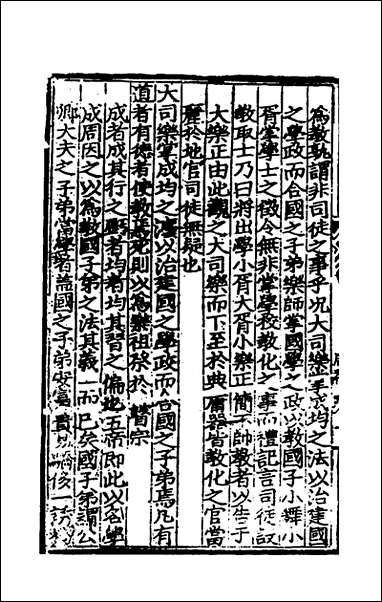 為教孰謂非司徒之事乎况大司樂掌成均之法以治建國
之學政而合國之子弟樂師掌國學之政以教國子小舞小
胥掌學士之徵令無非掌學校教化之事而禮記言司徒設
教取士乃曰將出學小胥大胥小樂正簡不帥教者以告于
大樂正由此觀之大司樂而下至於典庸器皆教化之官當
屬於地官司徒無疑也
大司樂掌成均之灋以治建國之學政而合國之子弟焉凡有
道者有德者使教焉死則以為樂祖祭於瞽宗
成者成其行之虧者均者均其習之偏也五帝即此以名學
成周因之以為教國子弟之法其義一而已矣國子弟謂公
卿大夫之子弟當學者蓋國之子弟安富貴